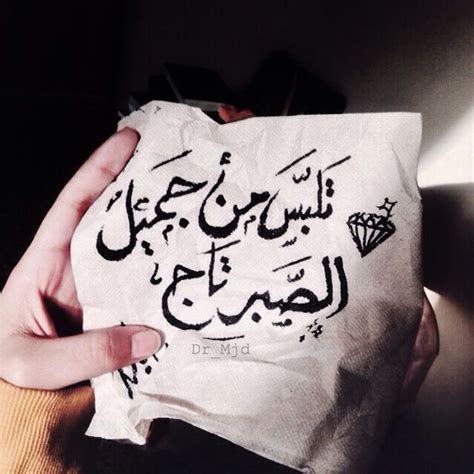 تَلبَسَّ مِن أجَمَيل
الصَّبرِ تَاج
Dr_Mjd